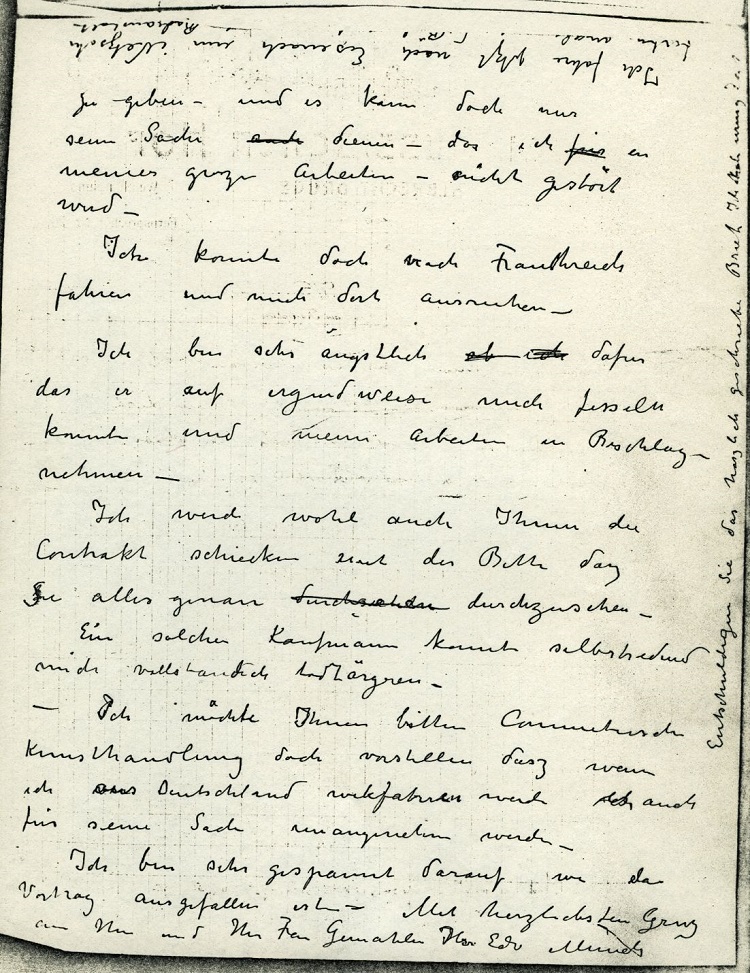 Ich fahre jetzt nach Eisenach um
zu geben – und es kann doch nur
seine Sache auch dienen – das ich für en
meines groze Arbeiten – nicht gestört
werd –
Ich konnte doch nach Frankreich
fahren und mich dort ausruhen –
Ich bin sehr ängstlich ob ich dafur
das er auf irgend weise mich fesseln
konnte und meine Arbeiten in Beschlag-
nehmen –
Ich werde wohl auch Ihnen die
Contrakt schicken mit der Bitte daz
Sie alles genau durchsehen durchzusehen –
Ein solcher Kaufmann konnte selbstredend
mich vollstandich todtärgren –
– Ich möchte Ihnen bitten Commetersche
Kunsthandlung doch vorstellen dasz wenn
ich aus Deutschland wekfahren werde auch
für seine Sache unangenehm werde –
Ich bin sehr gespannt darauf wie der
Vortrag ausgefallen ist – Mit herzlichsten Grusz
an Ihn und Ihr Frau Gemahlin Ihr Edv Munch
Entschuldigen Sie das häszlich geschriebe Brief